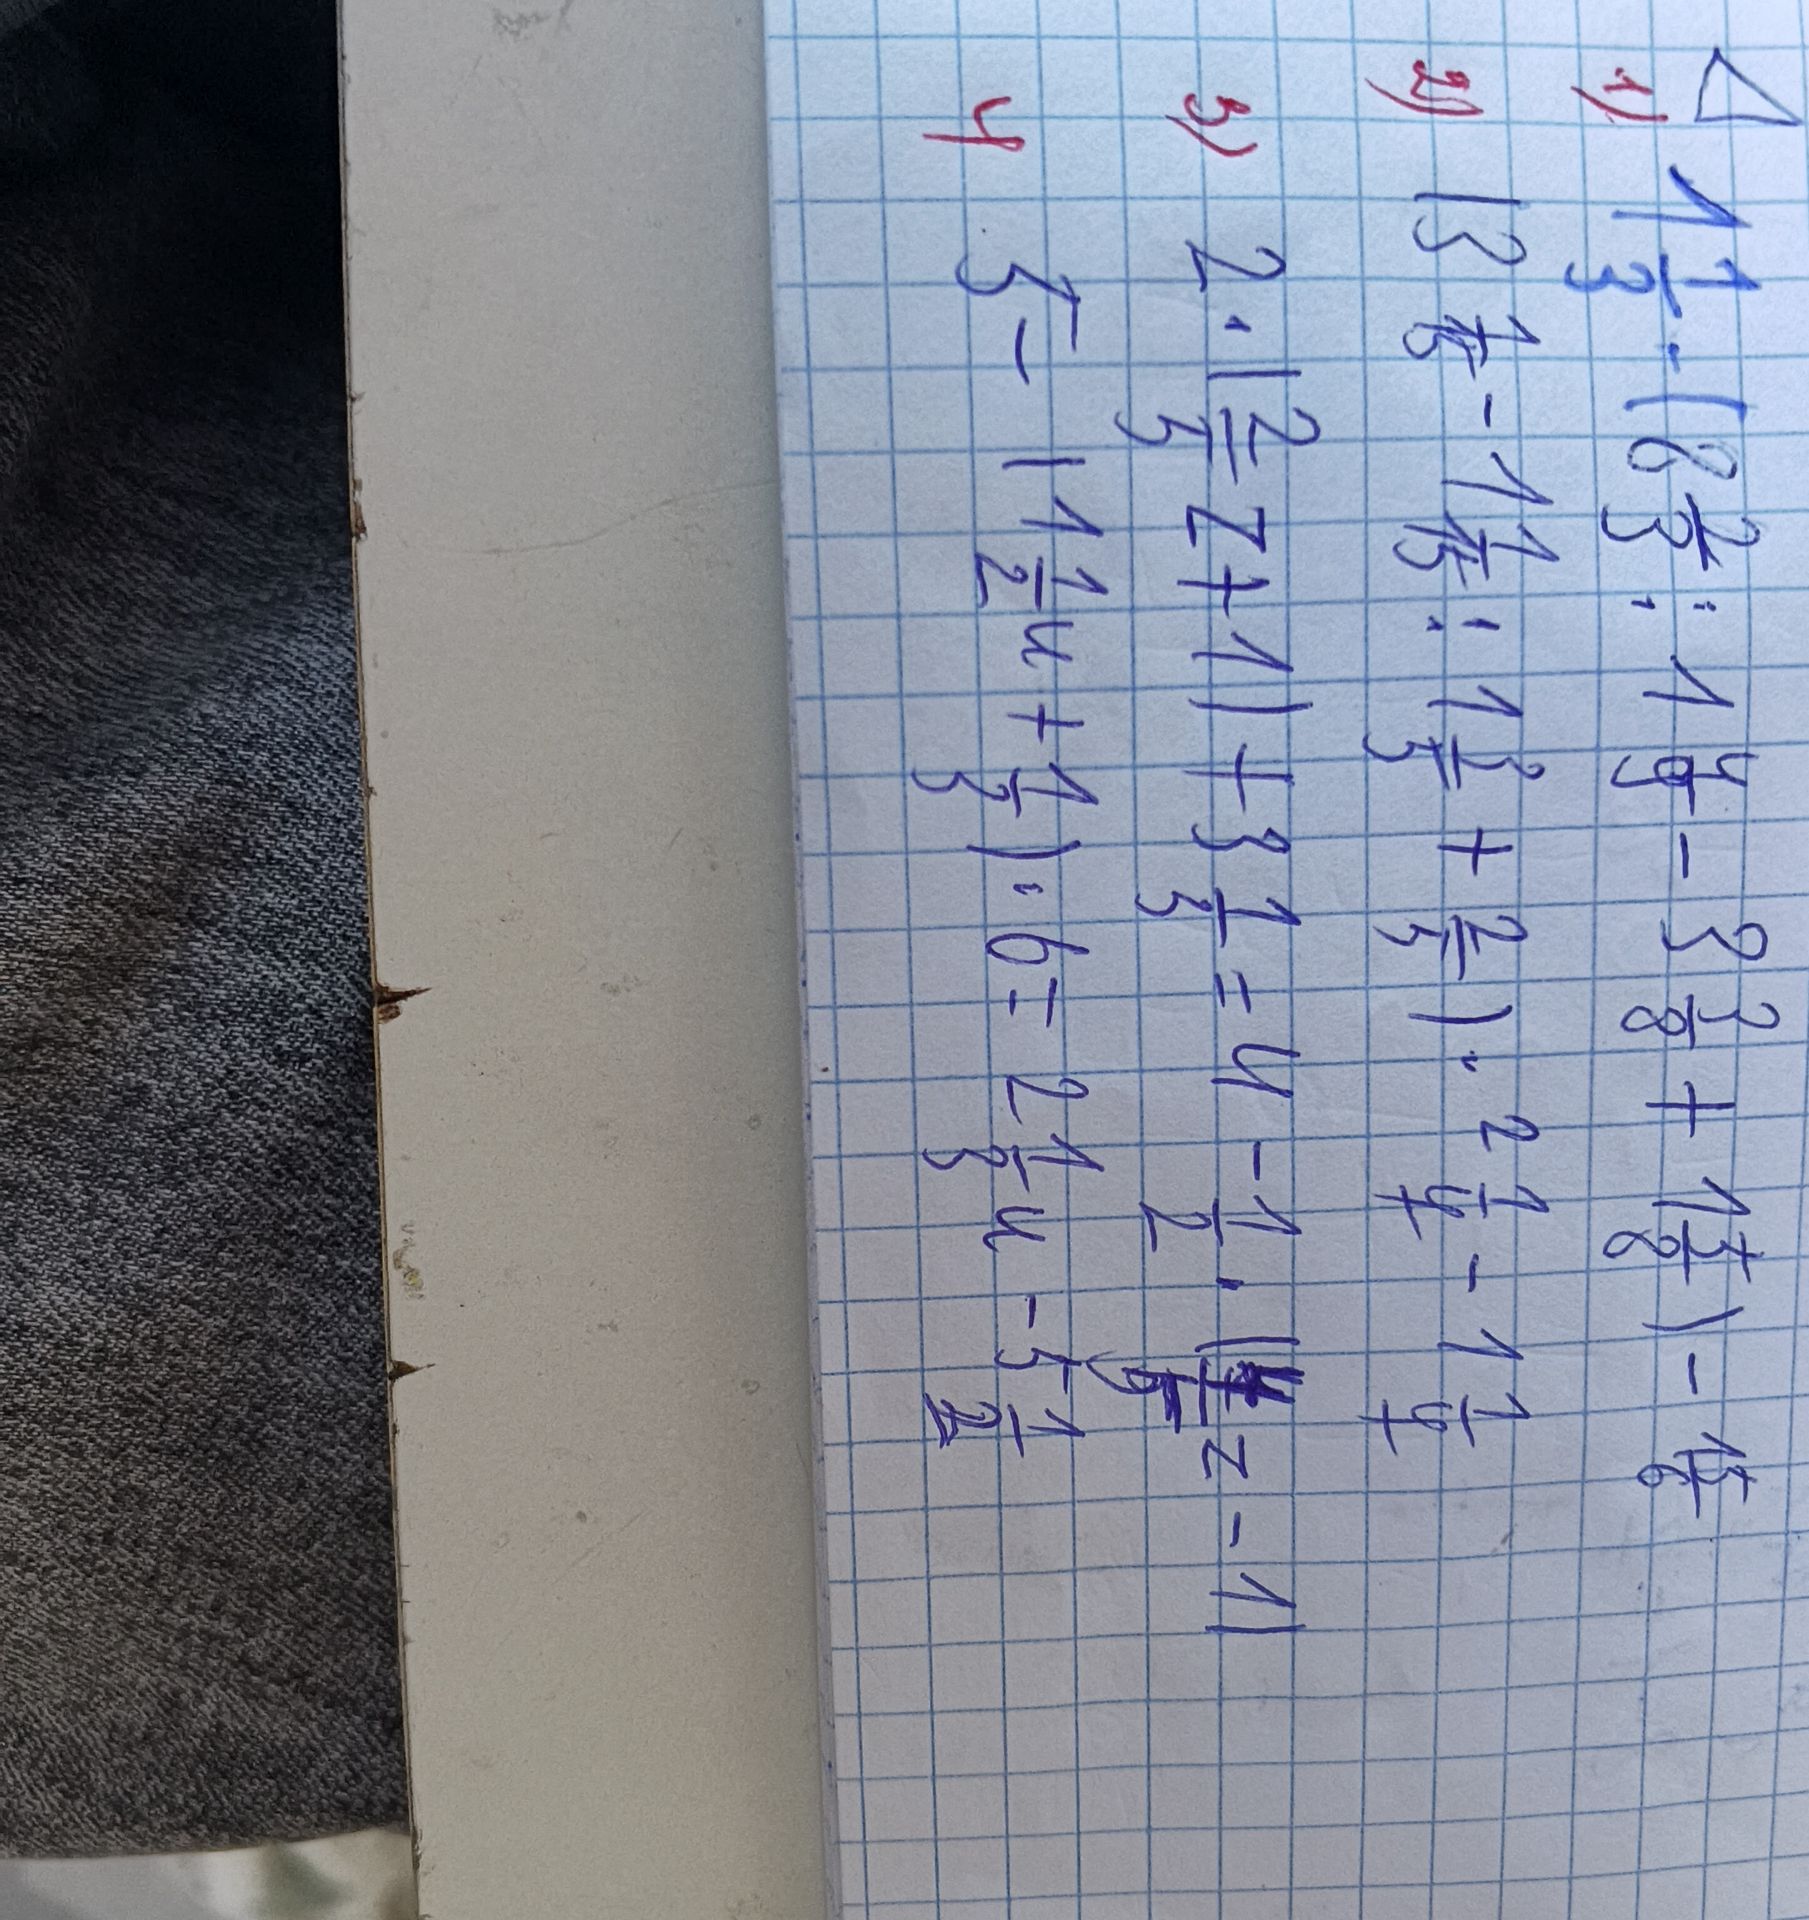 1) 1 1/3 · (6 2/3 : 1 4/9 - 3 3/8 + 1 5/8) - 15/6
2) (3 1/5 - 1 1/15 : 1 3/5 + 2/5) · 2 1/4 - 1 1/4
3) 2 · (2/5 z + 1) + 3 1/5 = 4 - 1/2 · (4/5 z - 1)
4 5 - (1 1/2 u + 1/3) · 6 = 2 1/3 u - 5 1/2